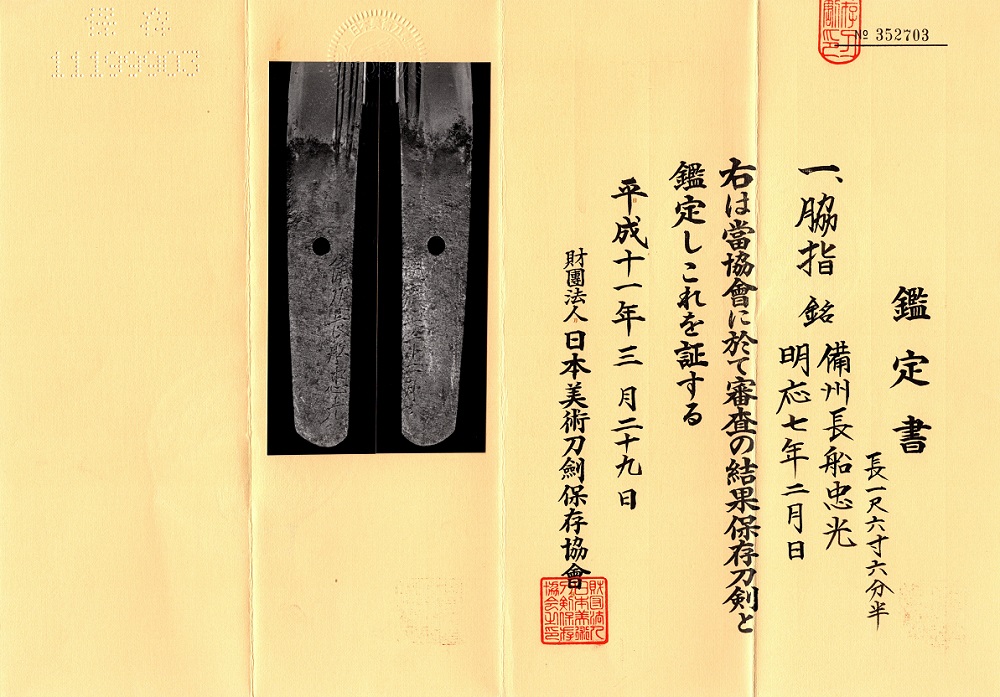 № 352703
鑑定書
長一尺六寸六分半
一、脇指 銘 備州長船忠光
明応七年二月日
右は當協會に於て審査の結果保存刀剣と
鑑定しこれを証する
平成十一年三月二十九日
財團法人日本美術刀劍保存協會
財団法人
日本美術
刀剣保存
協会之印
保存
11199903